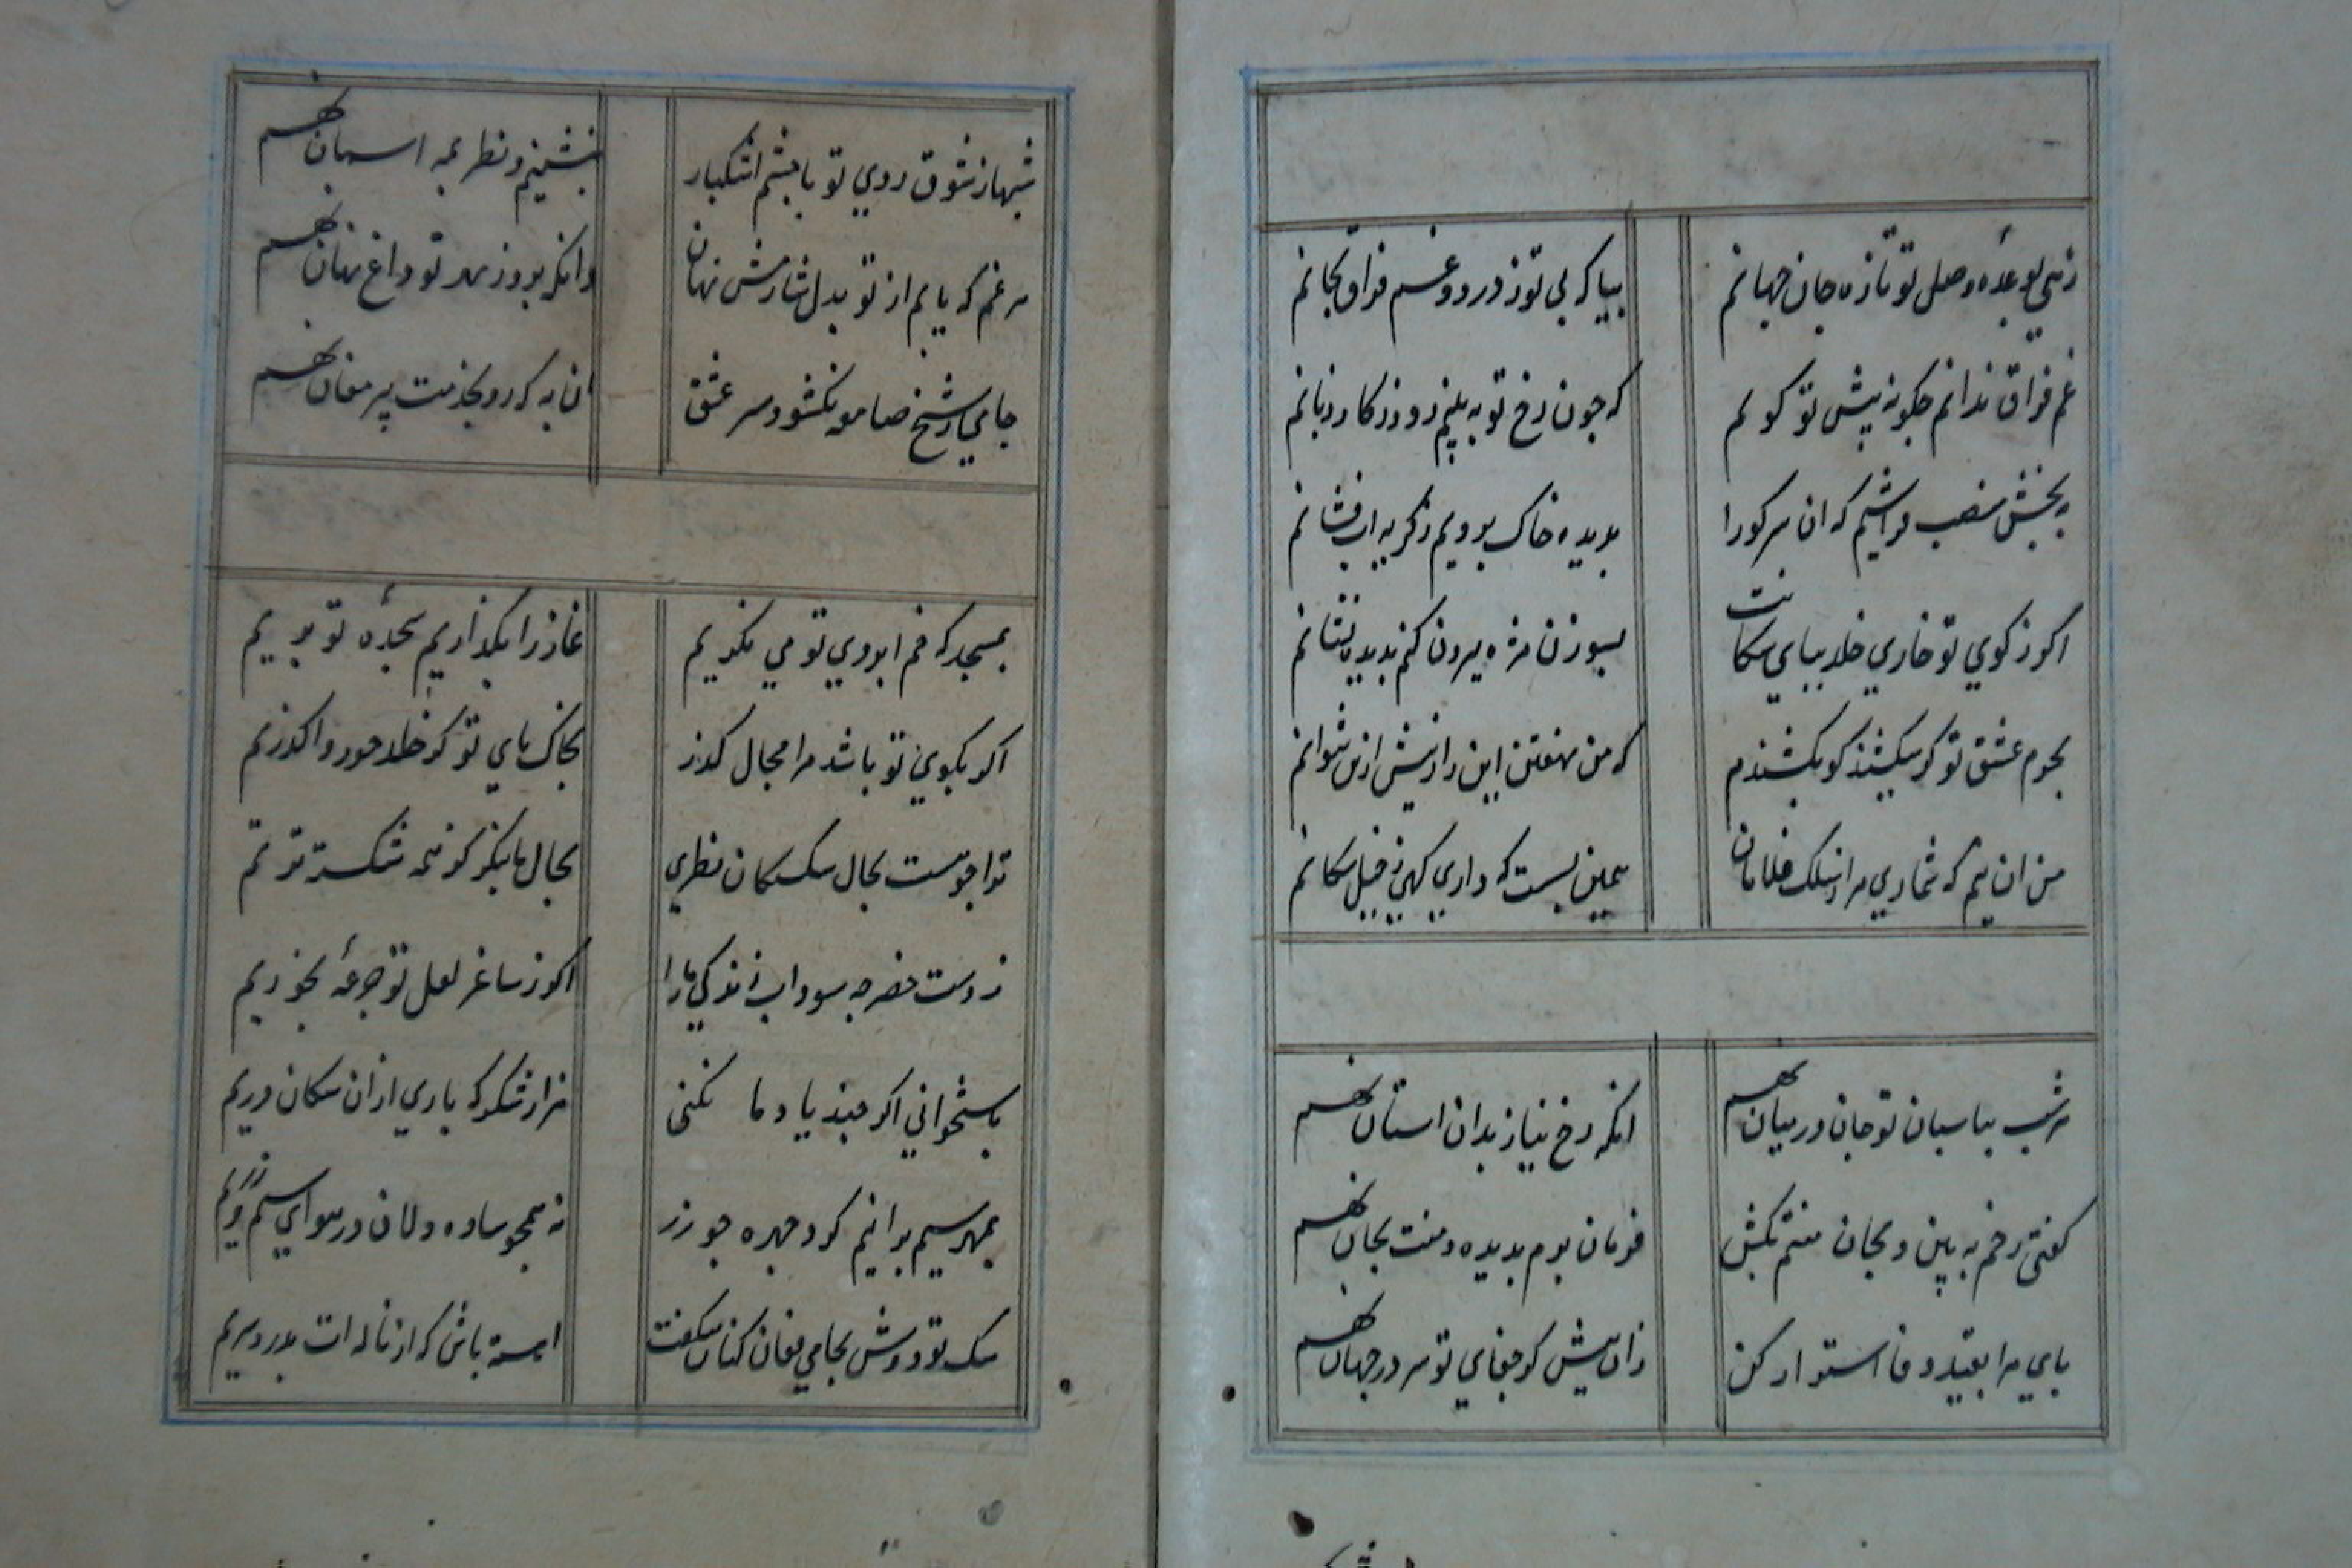 زهی بوعدهٔ وصل تو تازه جان جهانم
بیا که بی تو ز درد و غم فراق بجانم
غم فراق ندانم چکونه پیش تو کویم
که چون رخ تو به بینم رود ز کار زبانم
به بخش منصب فراشیم که ان سر کو را
بدیده خاک بروبم ز کریه اب فشانم
اکر ز کوی تو خاری خلد بپای سکانت
بسوزن مژه بیرون کنم بدیده نشانم
بجرم عشق تو کر میکشند کو بکشندم
که من نهفتن این راز بیش ازین نتوانم
من ان نیم که شماری مرا ز سلک غلامان
همین بسست که داری کهی ز خیل سکانم
هر شب بپاسبان تو جان در میان نهم
انکه رخ نیاز بدان استان نهم
کفتی رخم به بین و بجان منتم بکش
فرمان برم بدیده و منت بجان نهم
پای مرا بقید وفا استوار کن
زان پیش کز جفای تو سر در جهان نهم
شبها ز شوق روی تو با چشم اشکبار
بنشینم و نظر بمه اسمان نهم
هر غم که یابم از تو بدل سازمش نهان
وانکه برو ز مهر تو داغ نهان نهم
جامی ز شیخ صومعه نکشود سر عشق
ان به که رو بخدمت پیر مغان نهم
بمسجد که خم ابروی تو می نکریم
نماز را بکذاریم سجدهٔ تو بریم
اکر بکوی تو باشد مرا مجال کذر
بخاک پای تو کز خلد و حور درکذرم
ترا چو هست بحال سک سکان نظری
بحال ما بنکر کز همه شکسته تریم
ز دست خضر چه سود اب زندکی ما را
اکر ز ساغر لعل تو جرعهٔ نخوریم
باستخوانی اکر چند یاد ما نکنی
هزار شکر که باری ازان سکان دریم
بمهر سیم برانیم کرد چهره چو زر
نه همچو ساده دلان در هوای سیم و زریم
سک تو دوش بجامی فغان کنان میکفت
اهسته باش که از ناله ات بدرد سریم